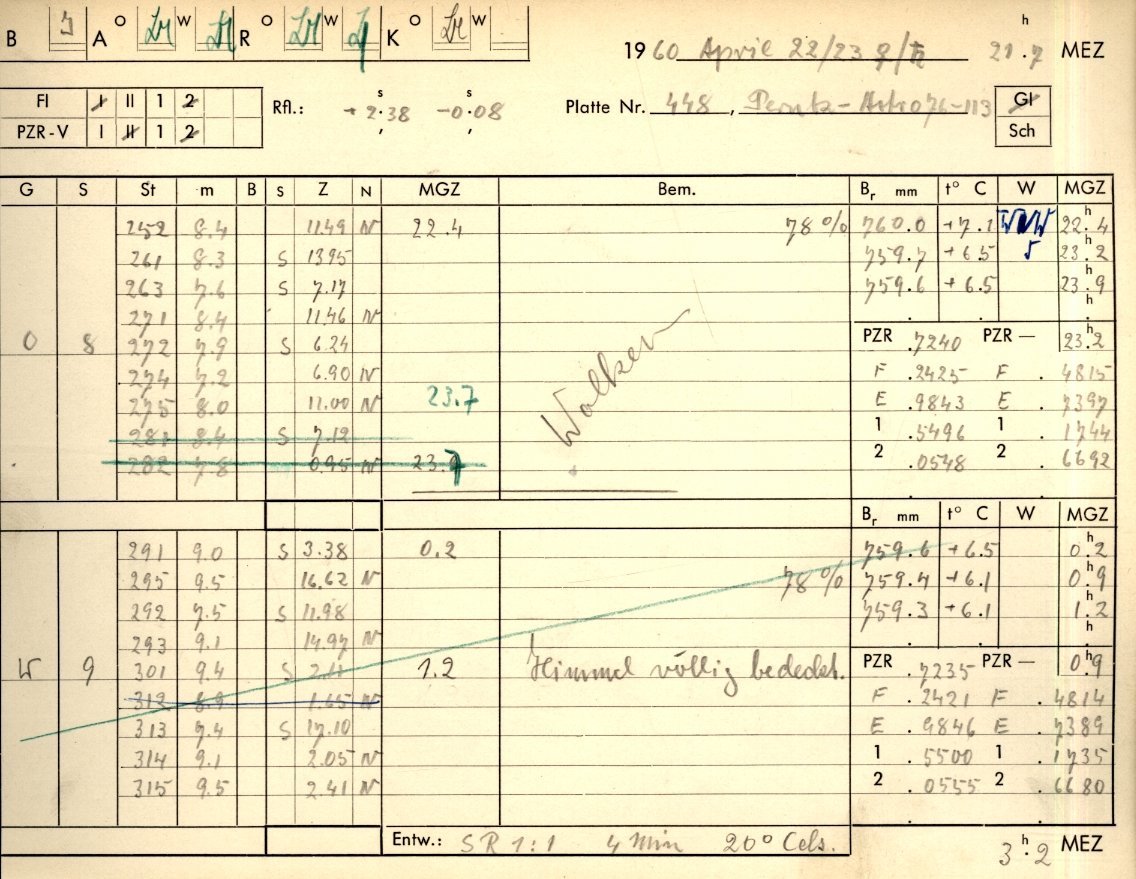 B J A O W R O W K O W
1960 April 22/23 21h.7 MEZ
FI I II 1 2 Rfl.: +2s.38 -0s.08 Platte Nr. 448, Perutz-Astro 76-113 Gl
PZR-V I II 1 2 Sch
G S St m B S Z N MGZ Bem. Br mm t° C W MGZ
252 8.4 11.49 N 22.4 78% 760.0 +7.1 22h.4
261 8.3 S 13.95 759.7 +6.5 23h.2
263 7.6 S 7.17 759.6 +6.5 23h.9
271 8.4 11.46 N
O 8 272 7.9 S 6.24 PZR .7240 PZR — 23h.2
274 7.2 6.90 N F .2425 F .4815
275 8.0 11.00 N 23.7 Wolken E .9843 E .7397
281 8.4 S 7.12 1 .5496 1 .1744
282 7.8 0.95 N 2 .0548 2 .6692
Br mm t° C W MGZ
291 9.0 S 3.38 0.2 759.6 +6.5 0h.2
295 9.5 16.62 N 78% 759.4 +6.1 0h.9
292 7.5 S 11.98 759.3 +6.1 1h.2
293 9.1 14.97 N
W 9 301 9.4 S 2.11 1.2 Himmel völlig bedeckt. PZR .7235 PZR — 0h.9
312 8.9 1.65 N F .2421 F .4814
313 7.4 S 17.10 E .9846 E .7389
314 9.1 2.05 N 1 .5500 1 .1735
315 9.5 2.41 N 2 .0555 2 .6680
Entw.: SR 1:1 4 Min 20° Cels. 3h.2 MEZ